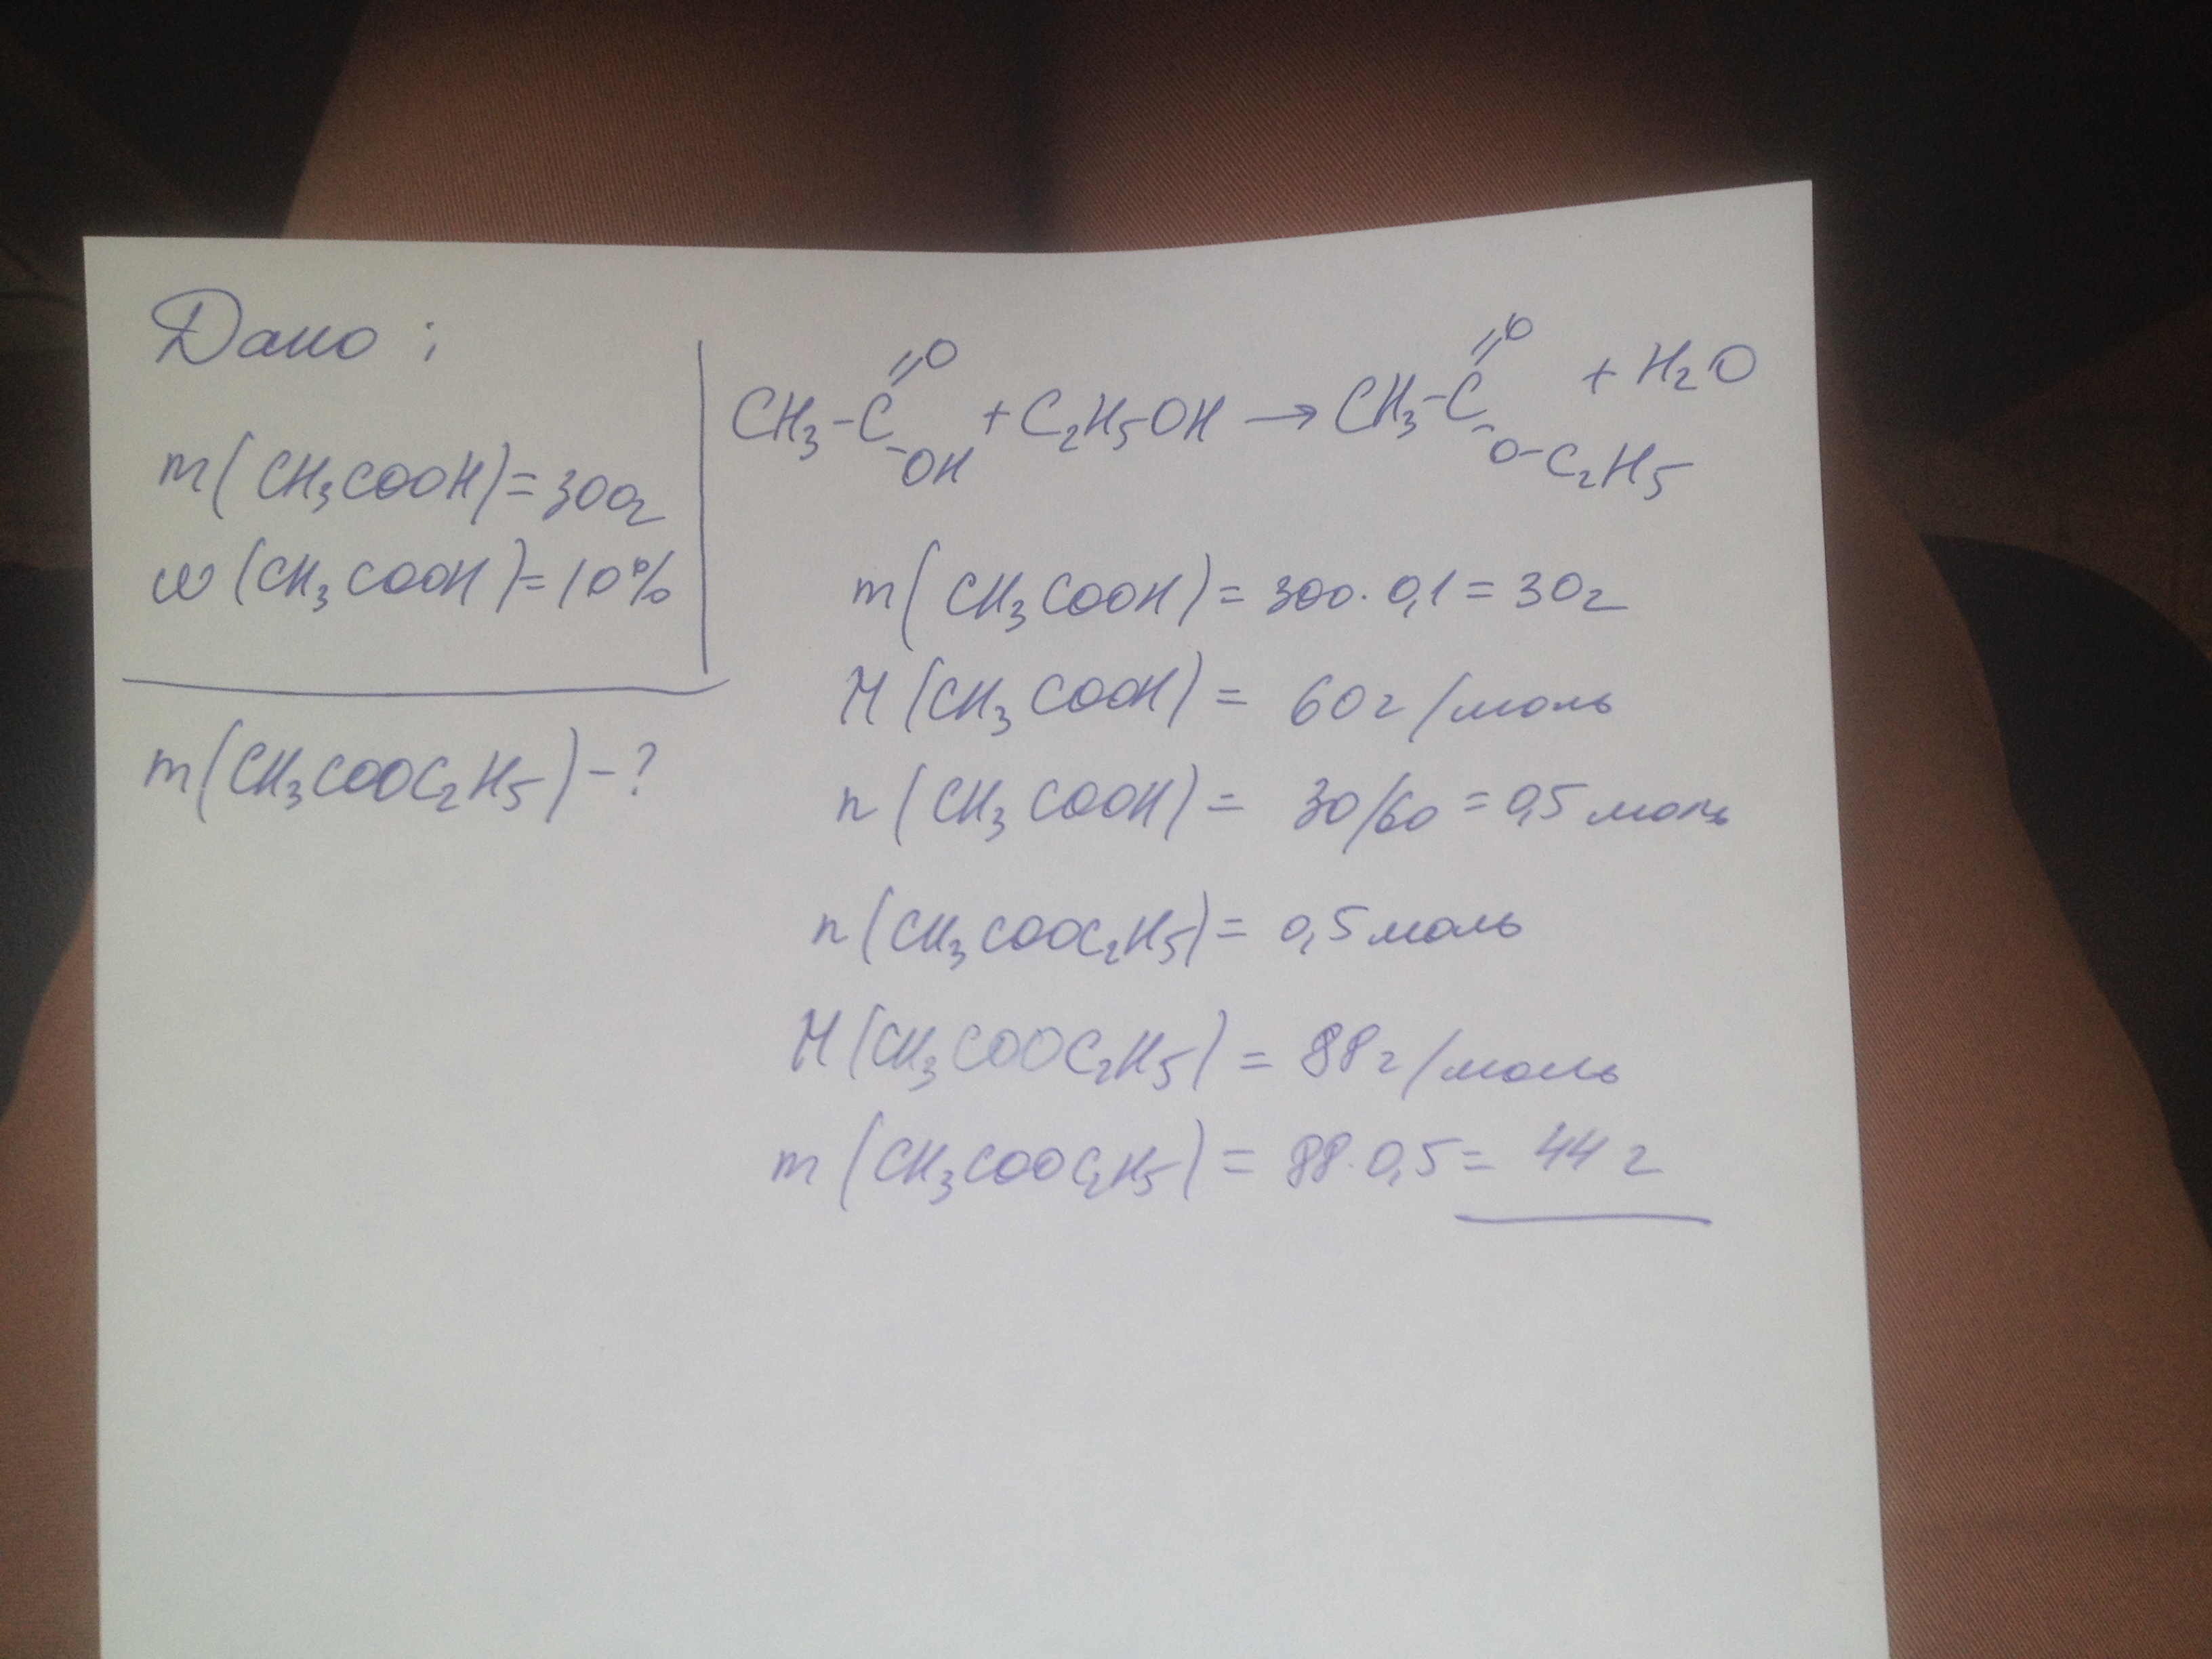 Дано:
m(CH3COOH)=300г
w(CH3COOH)=10%
m(CH3COOC2H5)-?
CH3-C=O-OH + C2H5OH → CH3-C=O-O-C2H5 + H2O
m(CH3COOH) = 300·0,1 = 30г
M(CH3COOH) = 60г/моль
n(CH3COOH) = 30/60 = 0,5 моль
n(CH3COOC2H5) = 0,5 моль
M(CH3COOC2H5) = 88г/моль
m(CH3COOC2H5) = 88·0,5 = 44 г